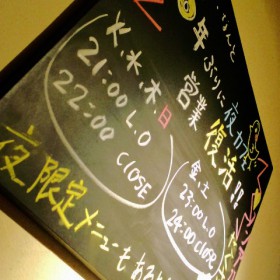 なんと
年ぶりに夜カフェ
営業復活!!
火水木日
21:00 L.O
22:00 CLOSE
金土
23:00 L.O
24:00 CLOSE
夜限定メニューもある